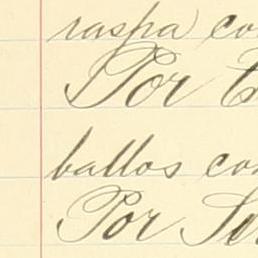 raspa co
Por
ballos co
Por